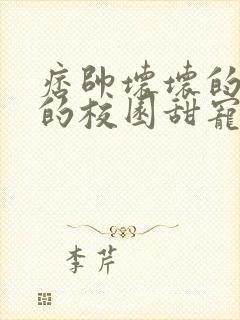 痞帅坏坏的
的校园甜宠
李芹